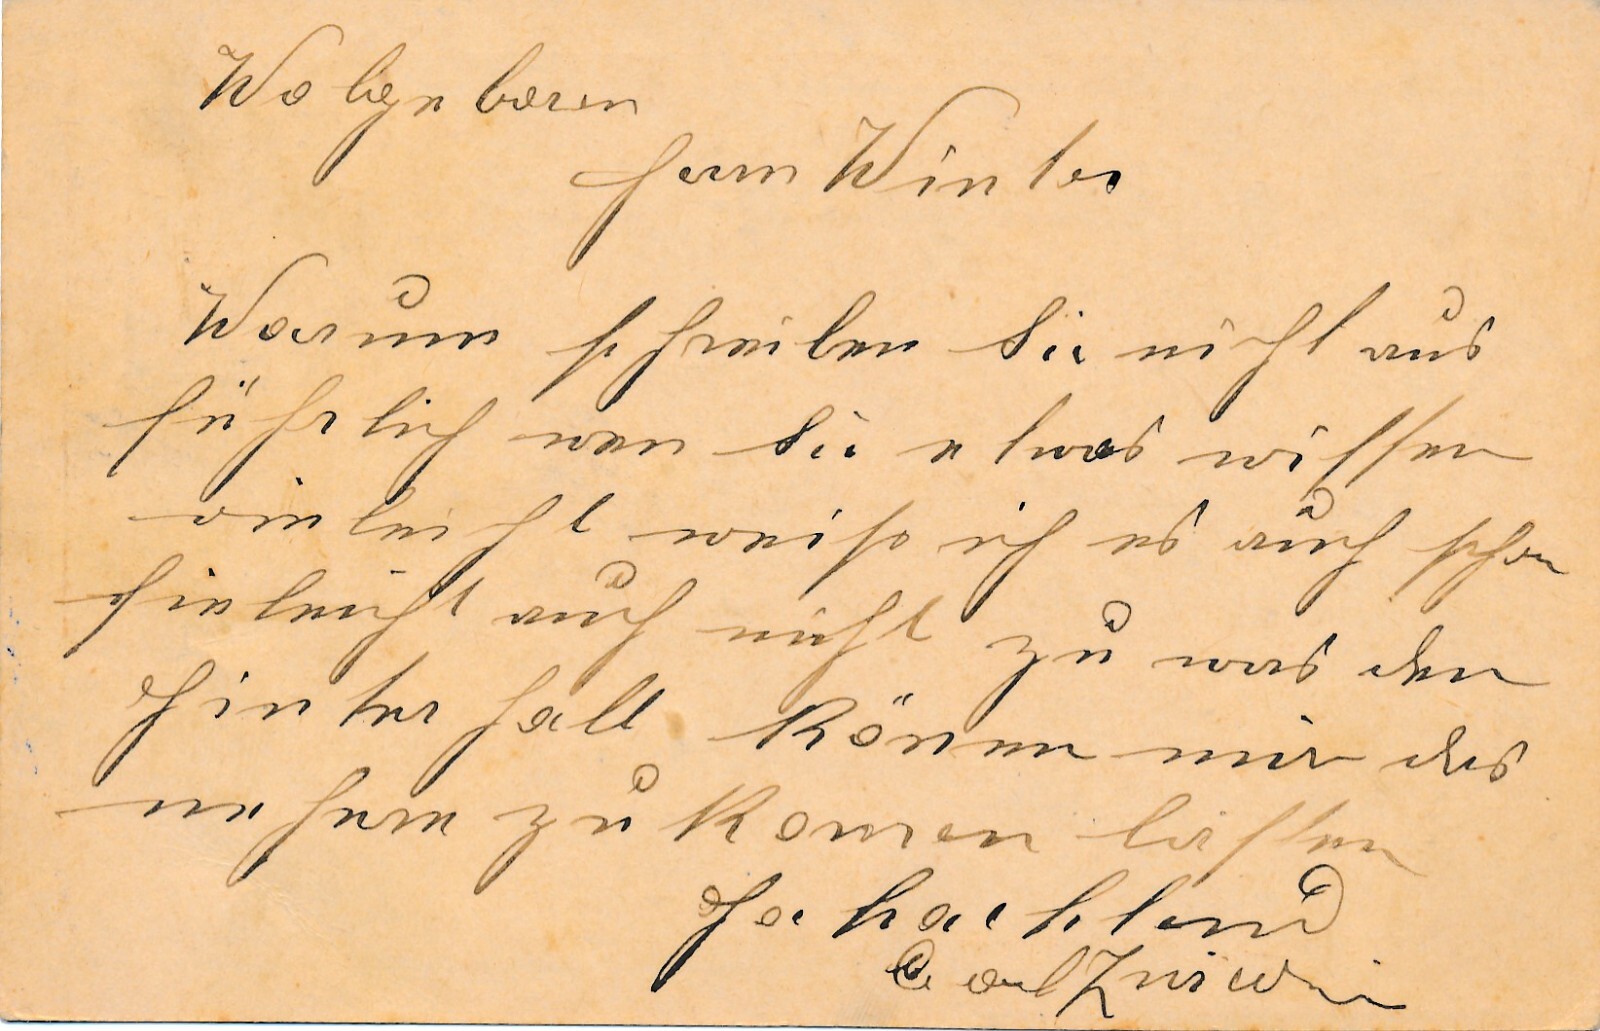 Wolgeboren
Herrn Winter
Warum schreiben Sie nicht aus
führlich wen Sie etwas wissen
vieleicht weiss ich es auch schon
fieleicht auch nicht zu was den
Hinterhalt können mir das
nehere zu komen lassen
Hochachtend
Carl